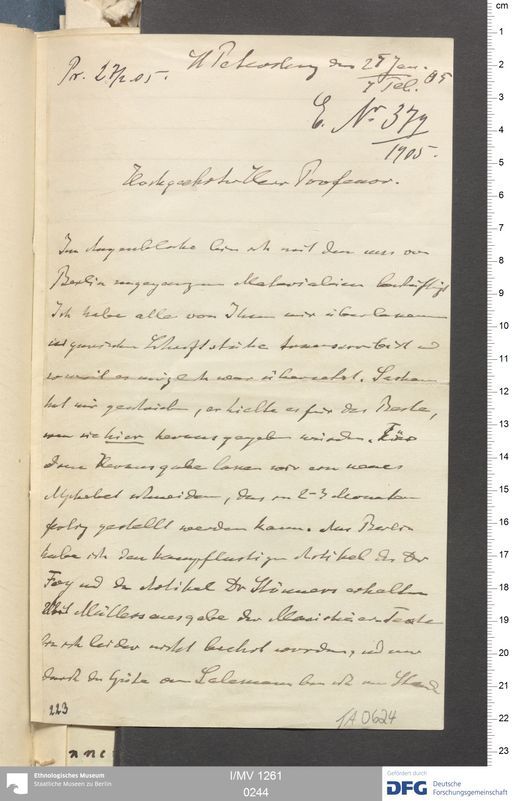 Pr. 27/2 05.
St Petersburg den 25 Jan. 05
7 Feb.
E. Nr 379
1905.
Hochgeehrter Herr Professor.
Im Augenblicke bin ich mit den uns von
Berlin zugegangenen Materialien beschäftigt
Ich habe alle von Ihnen mir überlassenen
uigurischen Schriftstücke transscribirt und
soweit es möglich war übersetzt. Sachau
hat mir geschrieben, er hielte es für das Beste,
wenn sie hier herausgegeben würden. Für
diese Herausgabe lassen wir ein neues
Alphabet schneiden, das in 2-3 Monaten
fertig gestellt werden kann. Aus Berlin
habe ich den kampflustigen Artikel des Dr
Foy und den Artikel Dr Stönners erhalten
Mit Müllers Ausgabe der Manichäer Texte
bin ich leider nicht beehrt worden, und nur
durch die Güte von Salemann bin ich im Stande
223
IA 0624
cm
1
2
3
4
5
6
7
8
9
10
11
12
13
14
15
16
17
18
19
20
21
22
23
Ethnologisches Museum
Staatliche Museen zu Berlin
I/MV 1261
0244
Gefördert durch
DFG Deutsche
Forschungsgemeinschaft